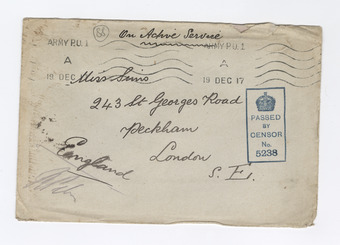 56
On Active Service
ARMY P.O. 1 ARMY P.O. 1
A A
19 DEC 19 DEC 17
Miss Sims
243 St Georges Road
Peckham
London
S. E.
England
PASSED
BY
CENSOR
No.
5238